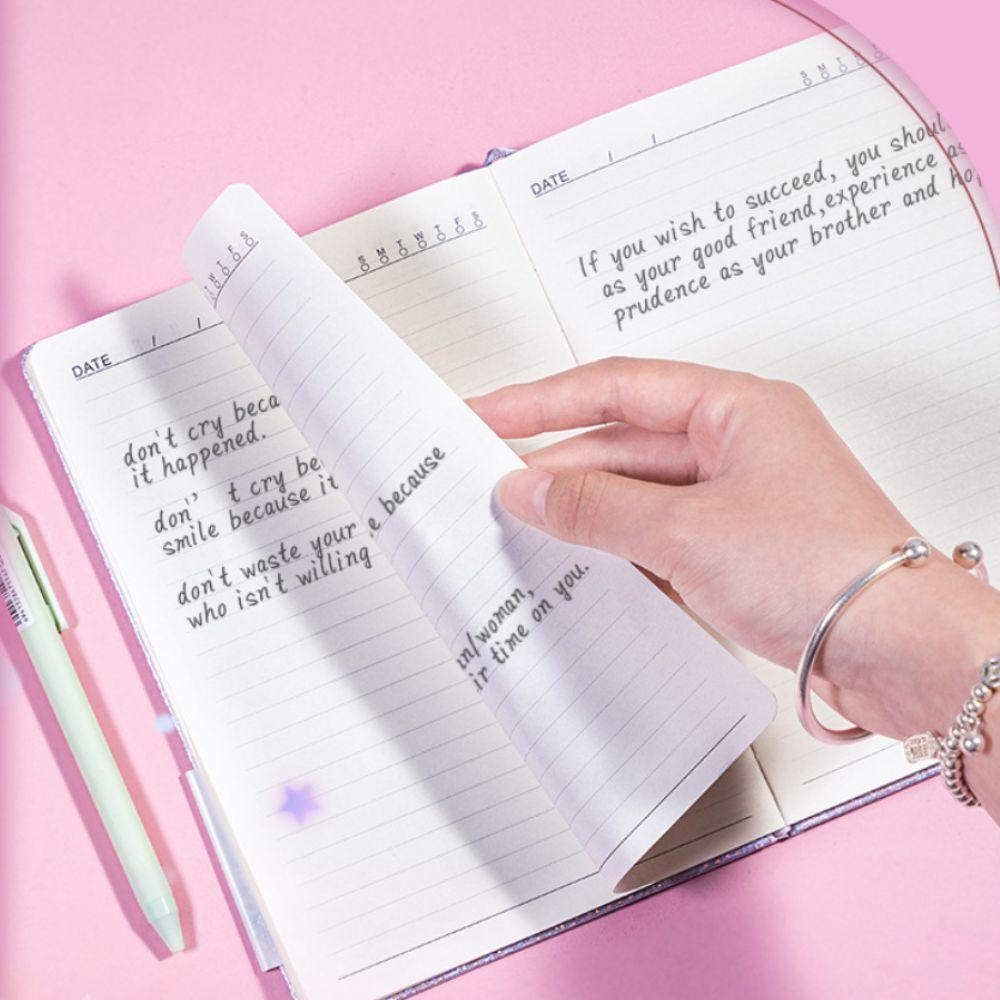 DATE / /
don't cry beca
it happened.
don' t cry be
smile because it
don't waste your
who isn't willing
W T F S
e because
an/woman,
ir time on you.
S M T W T F S
DATE / /
S M T W T
If you wish to succeed, you shoul
as your good friend,experience as
prudence as your brother and ho